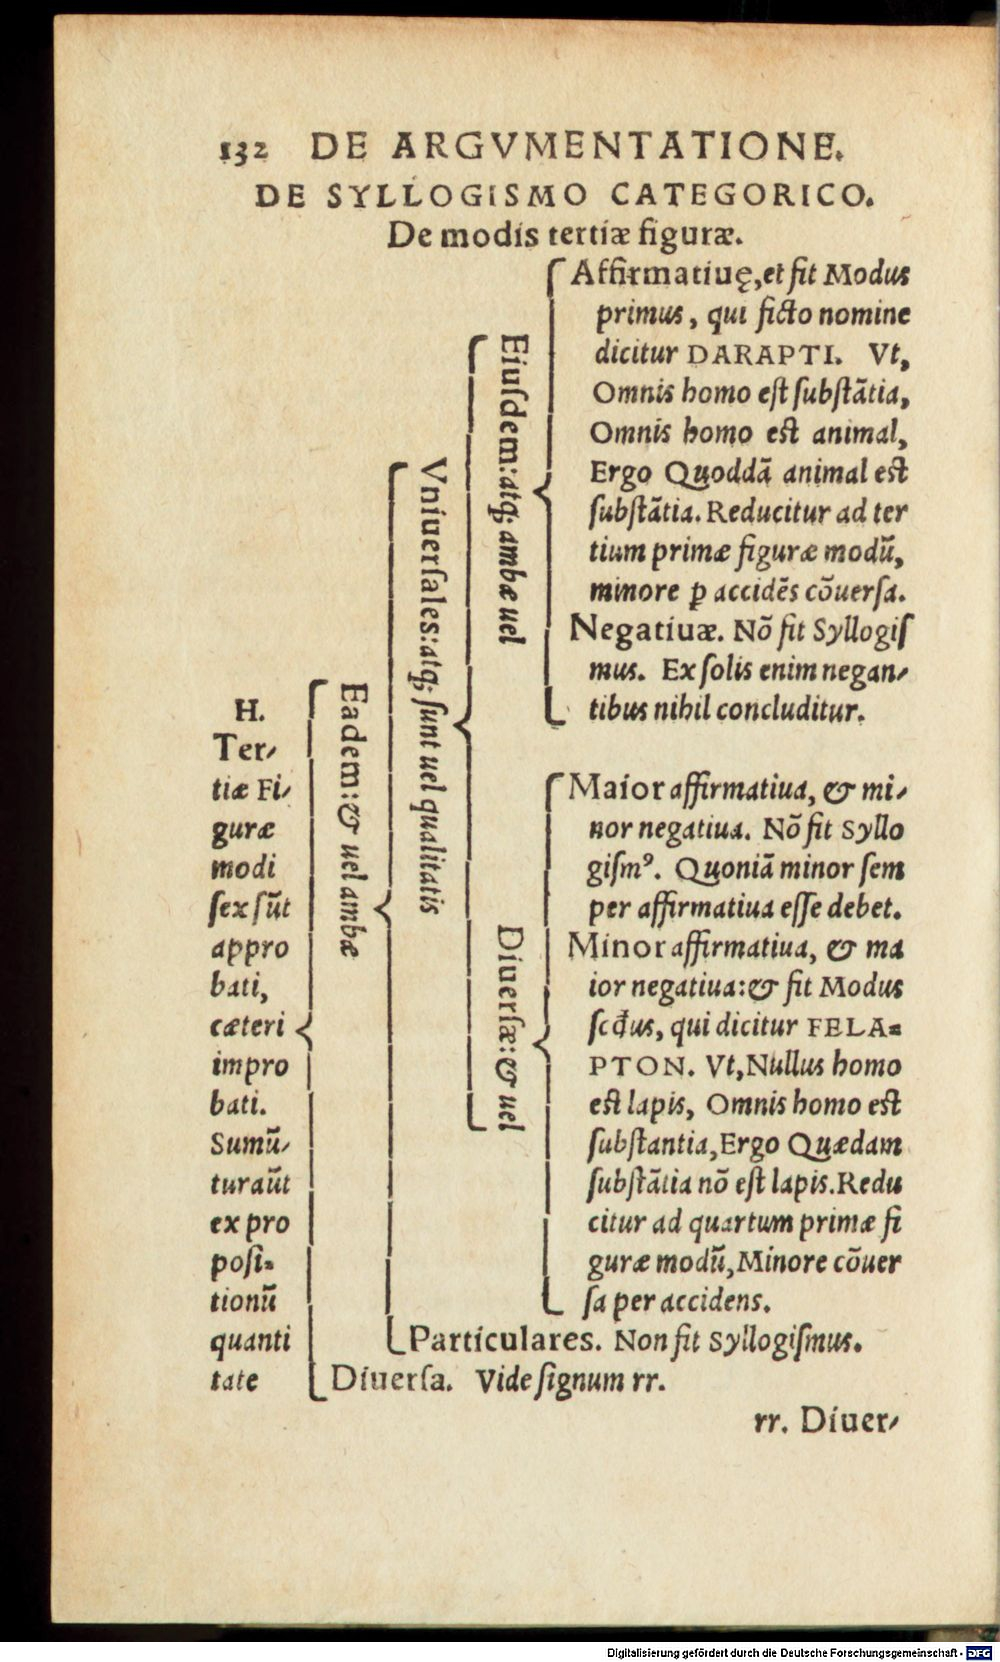 132 DE ARGVMENTATIONE.
DE SYLLOGISMO CATEGORICO.
De modis tertiæ figuræ.
H.
Ter-
tiæ Fi-
guræ
modi
sex sūt
appro
bati,
cæteri
impro
bati.
Sumū-
turaūt
ex pro
posi-
tionū
quanti
tate
Eadem: & uel ambæ
Vniuersales: atq; sunt uel qualitatis
Eiusdem: atq; ambæ uel
Affirmatiuę, et fit Modus
primus, qui ficto nomine
dicitur DARAPTI. Vt,
Omnis homo est substātia,
Omnis homo est animal,
Ergo Quoddā animal est
substātia. Reducitur ad ter
tium primæ figuræ modū,
minore ꝑ accidēs cōuersa.
Negatiuæ. Nō fit Syllogis
mus. Ex solis enim negan-
tibus nihil concluditur.
Diuersæ: & uel
Maior affirmatiua, & mi-
nor negatiua. Nō fit Syllo
gismꝰ. Quoniā minor sem
per affirmatiua esse debet.
Minor affirmatiua, & ma
ior negatiua: & fit Modus
scđus, qui dicitur FELA-
PTON. Vt, Nullus homo
est lapis, Omnis homo est
substantia, Ergo Quædam
substātia nō est lapis. Redu
citur ad quartum primæ fi
guræ modū, Minore cōuer
sa per accidens.
Particulares. Non fit Syllogismus.
Diuersa. Vide signum rr.
rr. Diuer-
Digitalisierung gefördert durch die Deutsche Forschungsgemeinschaft - DFG